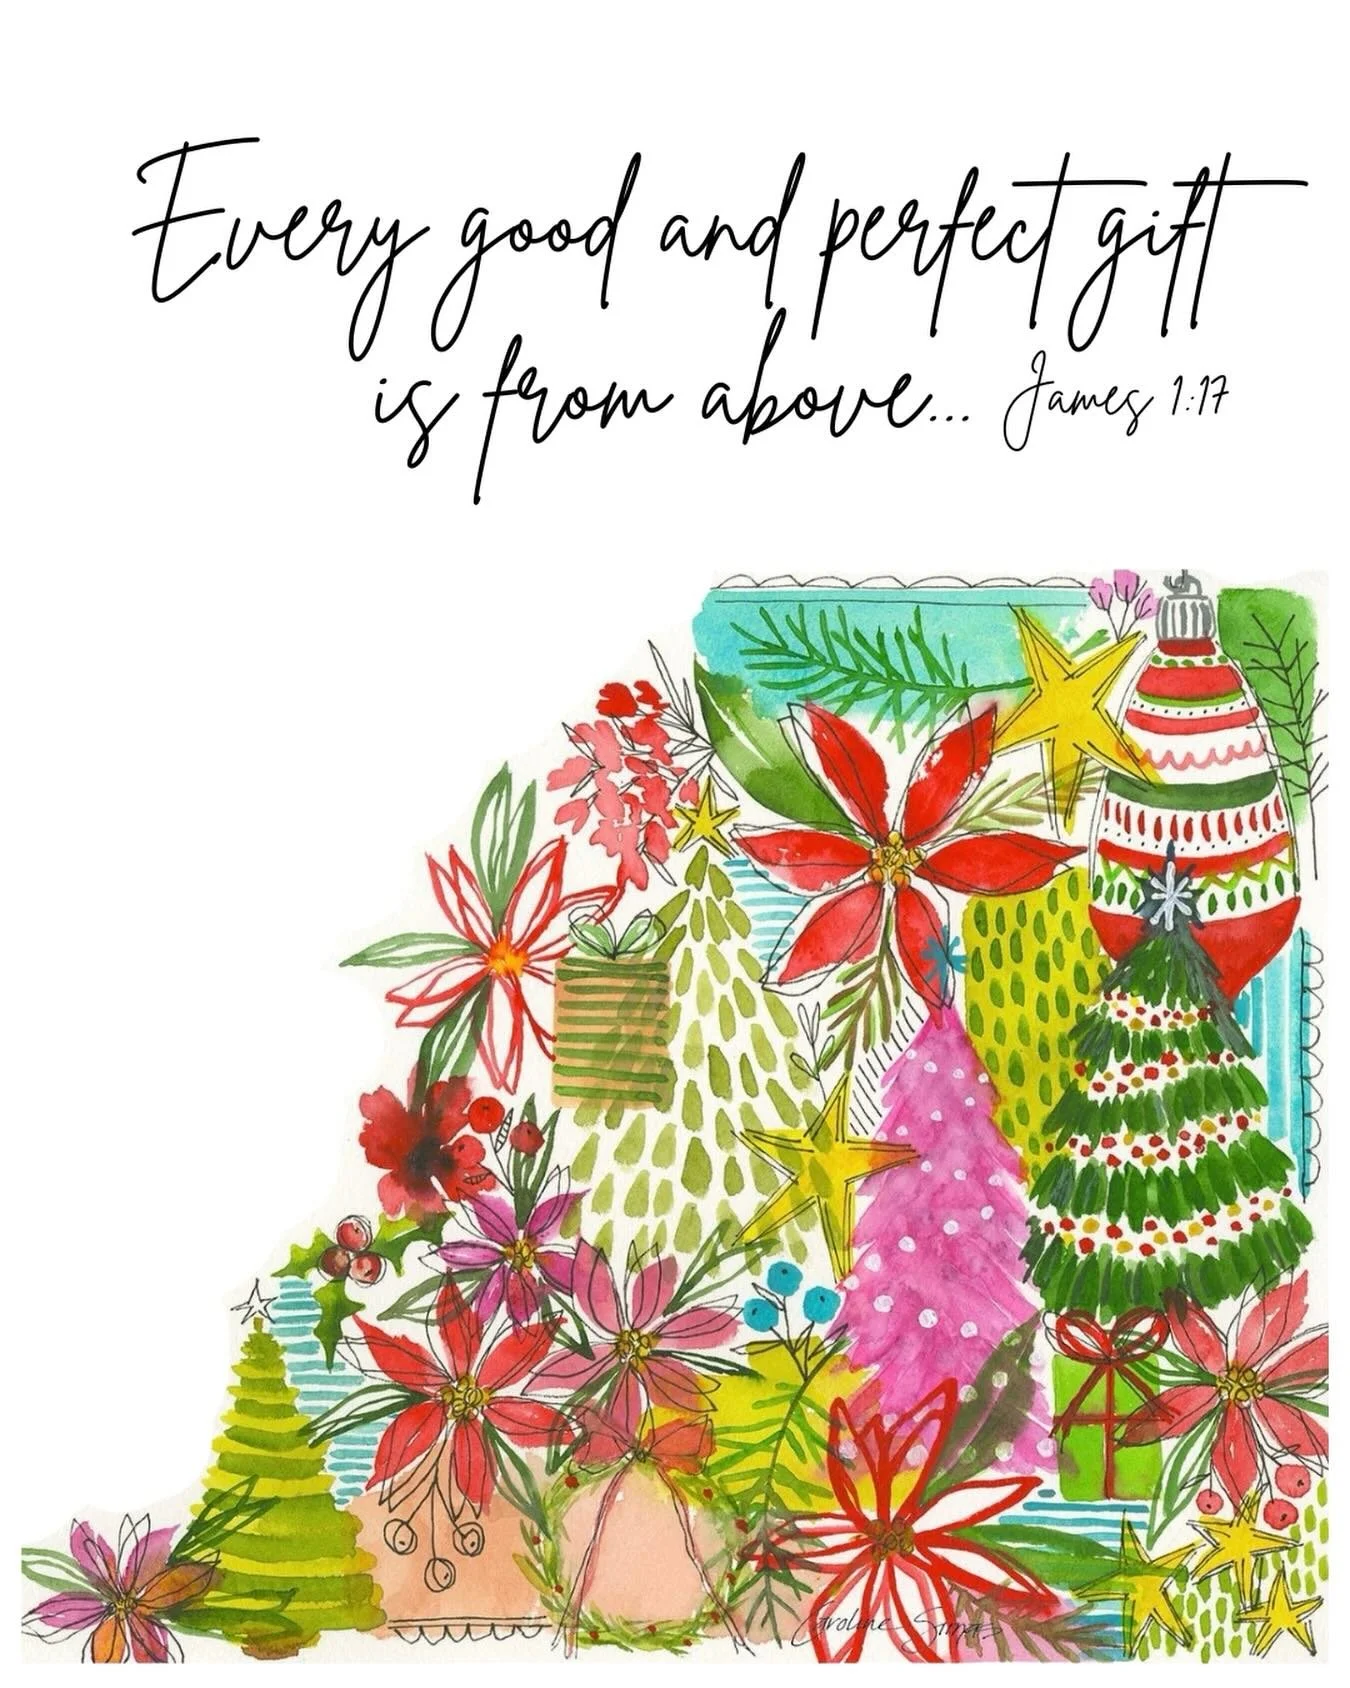 Every good and perfect gift
is from above... James 1:17
Caroline Simas